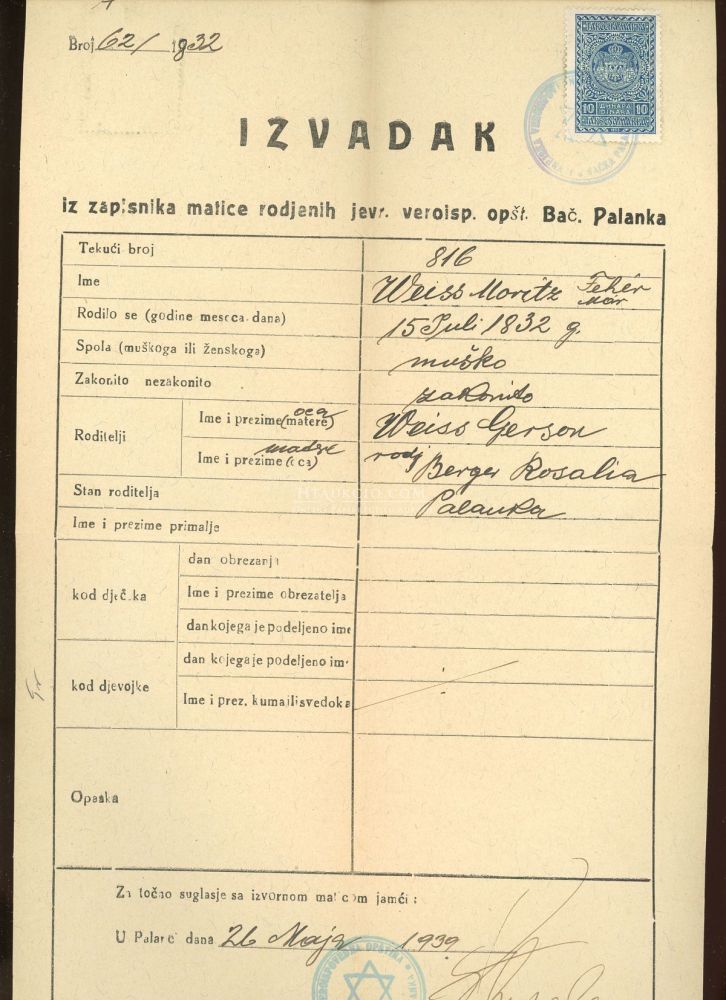 Broj 62/1832
10 ДИНАРА DINARA 10
IZVADAK
iz zapisnika matice rodjenih jevr. veroisp. opšt. Bač. Palanka
Tekući broj 816
Ime Weiss Moritz Fehér Mór
Rodilo se (godine meseca dana) 15 Juli 1832 g.
Spola (muškoga ili ženskoga) muško
Zakonito nezakonito zakonito
Roditelji
Ime i prezime (matere) oca Weiss Gerson
Ime i prezime (oca) matere rodj Berger Rosalia
Stan roditelja Palanka
HTAUKOLO.COM
Ime i prezime primalje
kod dječ.ka
dan obrezanja
Ime i prezime obrezatelja
dan kojega je podeljeno ime
kod djevojke
dan kojega je podeljeno im
Ime i prez. kuma ili svedoka
Opaska
Za točno suglasje sa izvornom maticom jamči:
U Palanc dana 26 Maja 1939